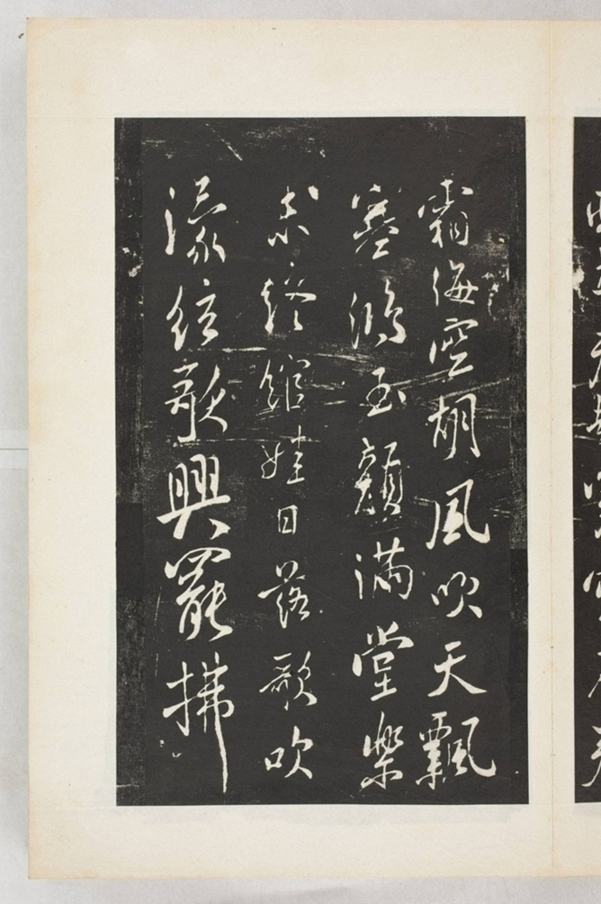 霜海空胡風吹天飄
塞鴻玉顏滿堂樂
未終館娃日落歌吹
濛絃歌興罷拂